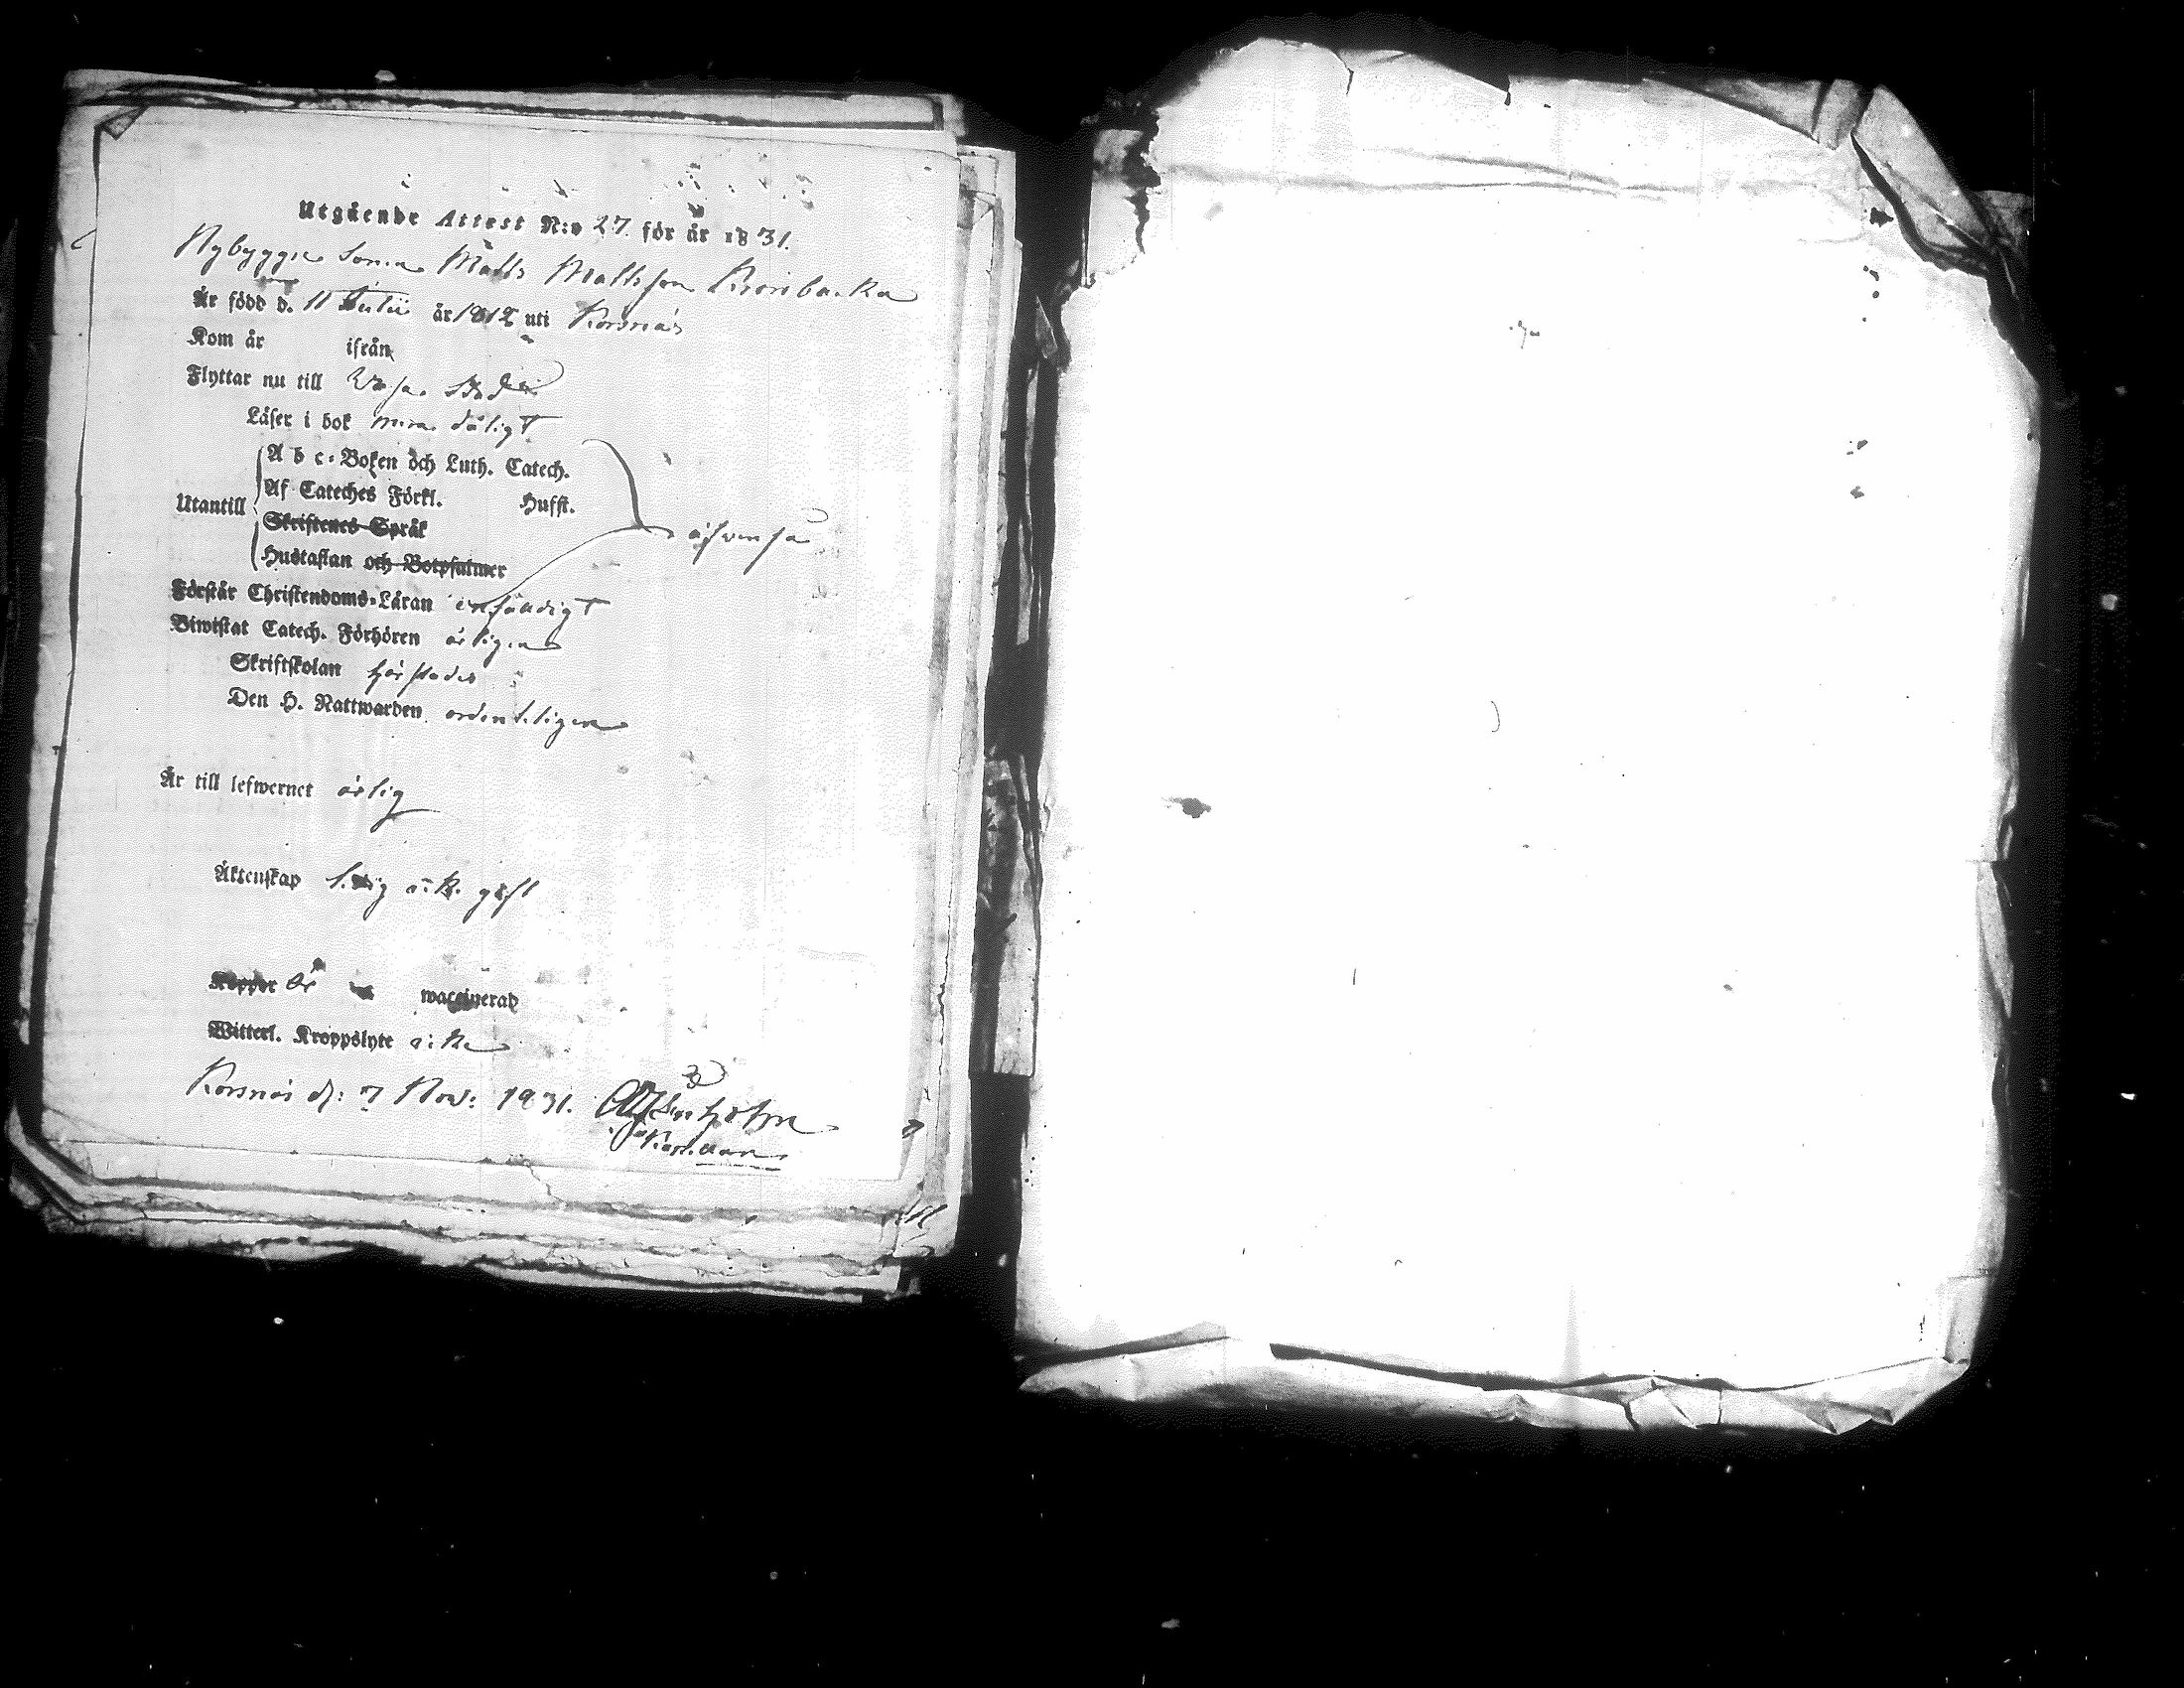 Utgående Attest N:o 27. för år 1831.
Nybygge Sonen Matts Mattsson Kronbacka
Är född d. 11 Julii år 1812 uti Korsnäs
Kom år ifrån
Flyttar nu till Wasa Stad
Läser i bok nura dåligt
A b c-Boken och Luth. Catech.
Af Cateches Förkl. Hufst.
Utantill
Skriftenes Språk
äfven så
Hustaflan och Botpsalmer
Förstår Christendoms-Läran enfaldigt
Biwistat Catech. Förhören årligen
Skriftskolan härstädes
Den H. Nattwarden ordenteligen
Är till lefwernet ärlig
Äktenskap ledig och gift
Koppor är waccinerad
Witterl. Kroppslyte icke
Korsnäs d: 7 Nov: 1831.